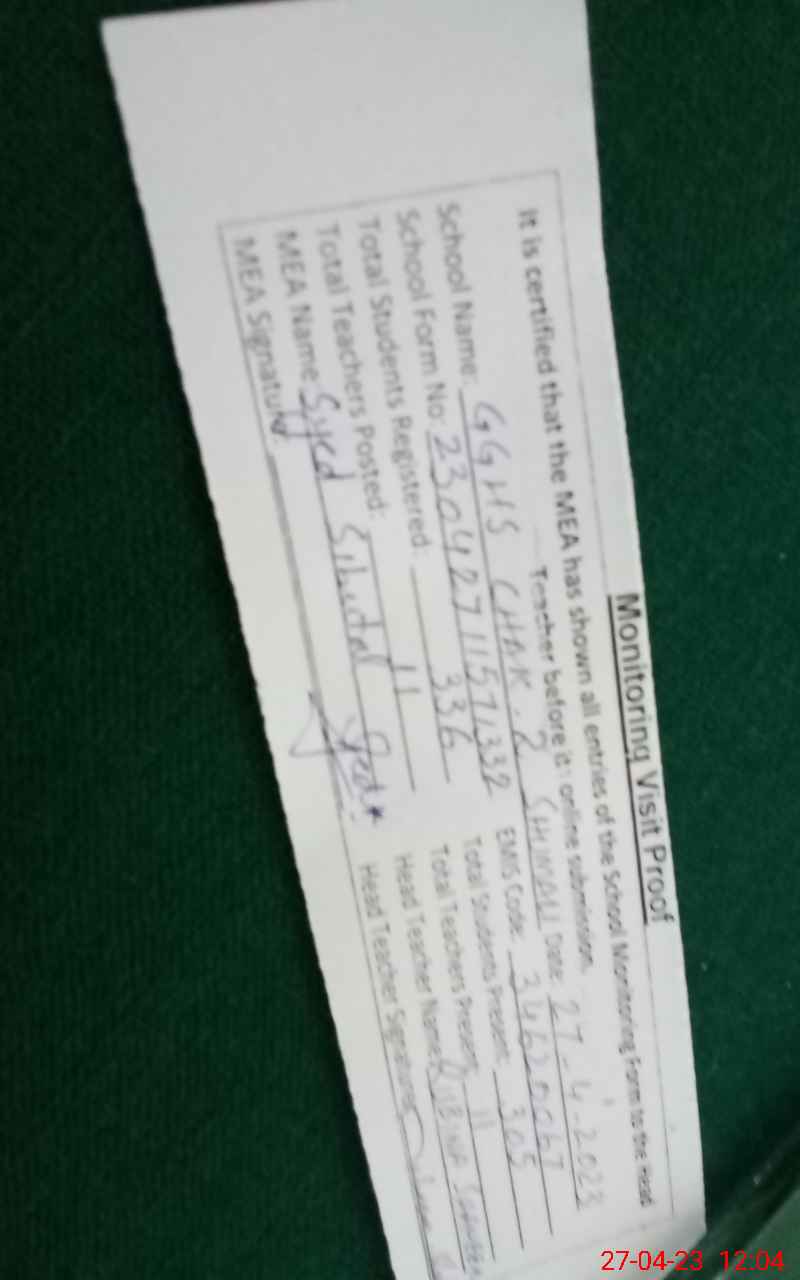 Monitoring Visit Proof
It is certified that the MEA has shown all entries of the School Monitoring Form to the Head
Teacher before it: online submission.
School Name: GGHS CHAK. 2 SHUMALI Date: 27-4-2023
School Form No: 2304271157332 EMIS Code:
Total Students Registered: 336 Total Students Present: 305
Total Teachers Posted: 11 Total Teachers Present: 11
MEA Name: Syed Head Teacher Name: RUBINA
MEA Signature: Head Teacher Signature:
27-04-23 12:04